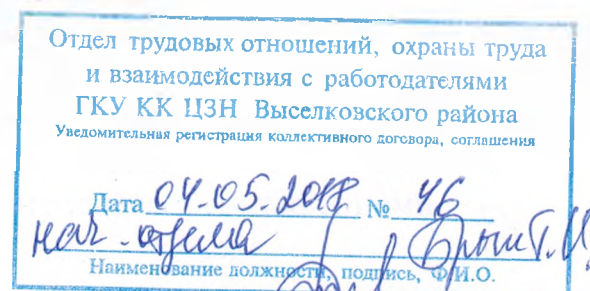 Отдел трудовых отношений, охраны труда
и взаимодействия с работодателями
ГКУ КК ЦЗН Выселковского района
Уведомительная регистрация коллективного договора, соглашения
Дата 04.05.2018 № 46
нач. отдела
Наименование должности, подпись, Ф.И.О.